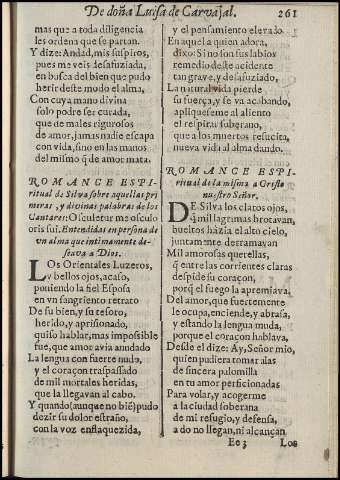 De doña Luisa de Carvajal. 261
mas que a toda diligencia
les ordena que se partan.
Y dize: Andad, mis suspiros,
pues me veis desafuziada,
en busca del bien que pudo
herir deste modo el alma,
Con cuya mano divina
solo podre ser curada,
que de males rigurosos
de amor, jamas nadie escapa
con vida, sino en las manos
del mismo q̃ de amor mata.
ROMANCE ESPI-
ritual de Silva sobre aquellas pri
meras, y divinas palabras de los
Cantares: Osculetur me osculo
oris sui. Entendidas en persona de
vn alma que intimamente de-
seava a Dios.
LOs Orientales Luzeros,
y bellos ojos, acaso,
poniendo la fiel Esposa
en vn sangriento retrato
De su bien, y su tesoro,
herido, y aprisionado,
quiso hablar, mas impossible
fue, que amor avia anudado
La lengua con fuerte nudo,
y el coraçon traspassado
de mil mortales heridas,
que la llegavan al cabo.
Y quando (aunque no biẽ) pudo
dezir su dolor estraño,
con la voz enflaquezida,
y el pensamiento elevado
En aquel a quien adora,
dixo: Si no son tus labios
remedio deste accidente
tan grave, y desafuziado,
La natural vida pierde
su fuerça, y se va acabando,
apliqueseme al aliento
el respirar soberano,
que a los muertos resucita,
nueva vida al alma dando.
ROMANCE ESPI-
ritual de la misma a Cristo
nuestro Señor.
DE Silva los claros ojos,
q̃ mil lagrimas brotavan,
bueltos házia el alto cielo,
juntamente derramavan
Mil amorosas querellas,
q̃ entre las corrientes claras
despide su coraçon,
porq̃ el fuego la apremiava.
Del amor, que fuertemente
le ocupa, enciende, y abrasa,
y estando la lengua muda,
porque el coraçon hablava,
Desde el dize: Ay, Señor mio,
quien pudiera tomar alas
de sincera palomilla
en tu amor perficionadas
Para volar, y acogerme
a la ciudad soberana
de mi refugio, y defensa,
a do no llegan, ni alcançan
Ee 3 Los